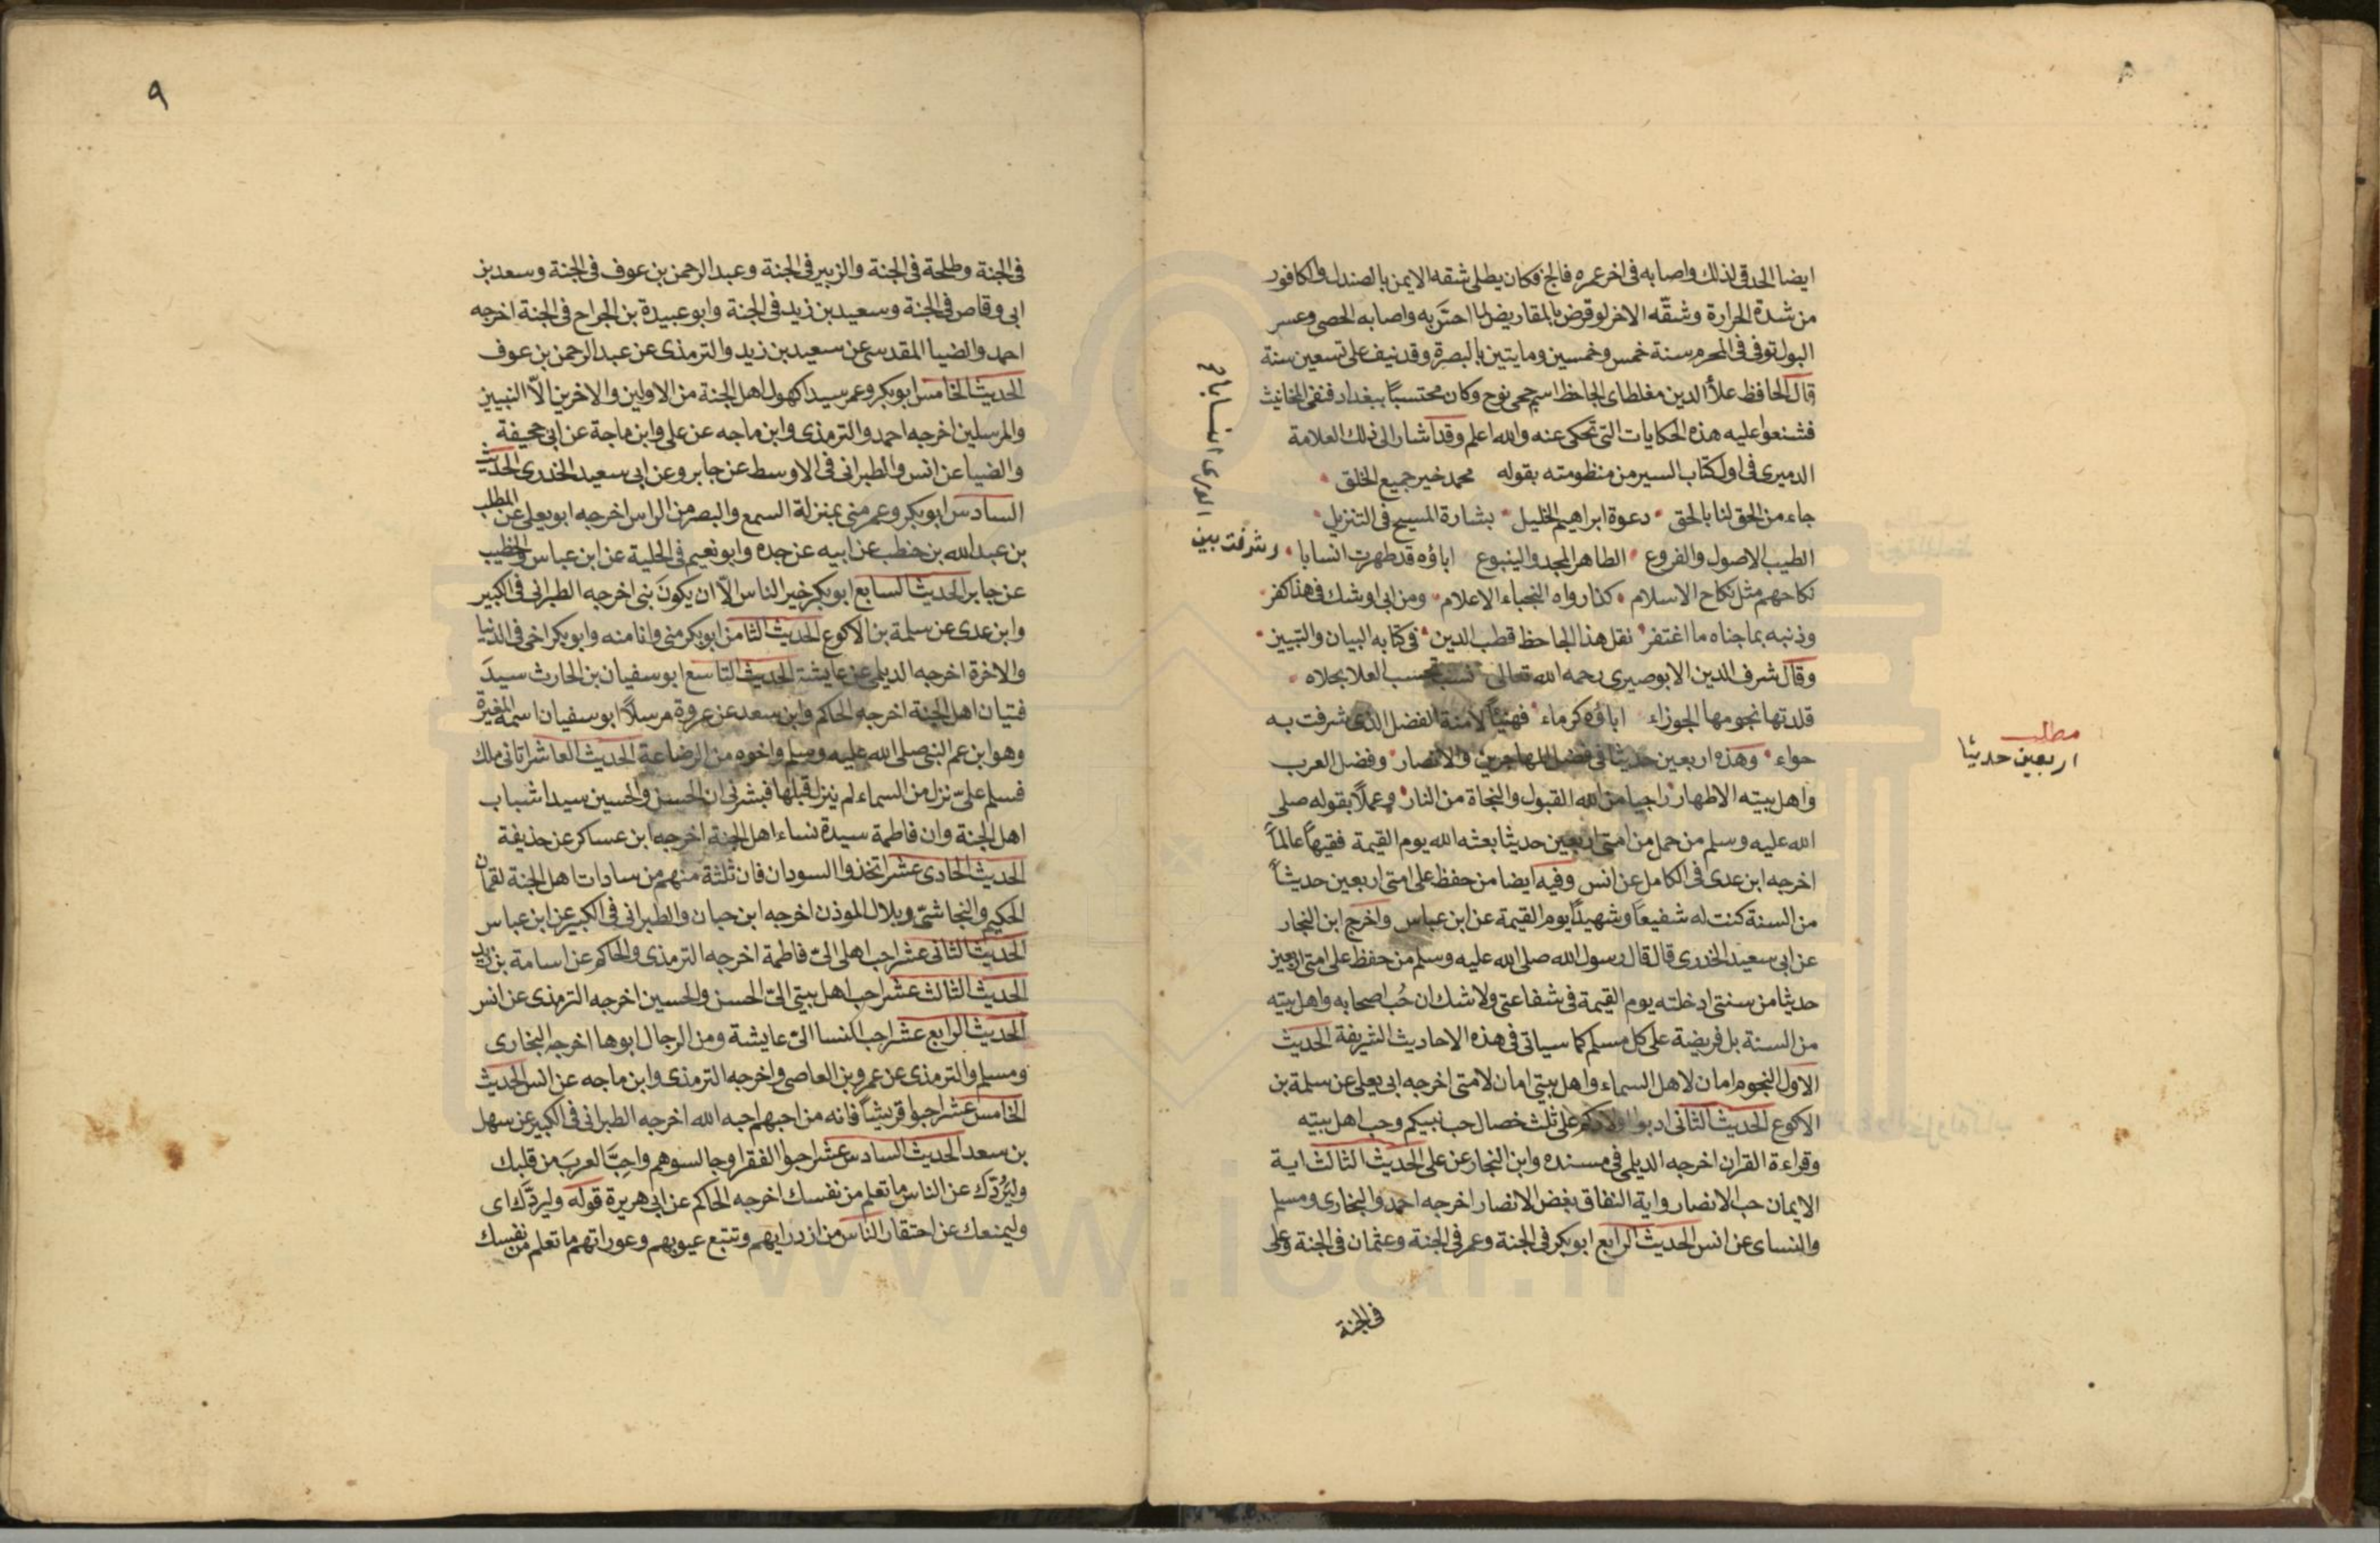 ايضا الحدقي لذلك واصابه في اخر عمره فالج فكان يطلى شقه الايمن بالصندل والكافور
من شدة الحرارة وشقّه الاخر لو قرض بالمقاريض لما احسّ به واصابه الحصى وعسر
البول توفى في المحرم سنة خمس وخمسين ومايتين بالبصرة وقد نيف على تسعين سنة
قال الحافظ علاء الدين مغلطاى الجاحظ اسم جمى نوح وكان محتسبًا ببغداد فنفى المخانيث
فشنعوا عليه هذه الحكايات التي تحكى عنه والله اعلم وقد اشار الى ذلك العلامة
الدميرى في اول كتاب السير من منظومته بقوله محمد خير جميع الخلق
جاء من الحق لنا بالحق دعوة ابراهيم الخليل بشارة المسيح في التنزيل
الطيب الاصول والفروع الطاهر المجد والينبوع اباؤه قد طهرت انسابا وشرفت بين
الورى انسابا صح
نكاحهم مثل نكاح الاسلام كذا رواه النجباء الاعلام ومن ابى او شك في هذا كفر
وذنبه بما جناه ما اغتفر نقل هذا الجاحظ قطب الدين في كتابه البيان والتبيين
وقال شرف الدين الابوصيرى رحمه الله تعالى نسب تحسب العلا بحلاه
قلدتها نجومها الجوزاء اباؤه كرماء فهنيأً لامنة الفضل الذى شرفت به
حواء وهذه اربعين حديثا في فضل المهاجرين والانصار وفضل العرب
مطلب
اربعين حديثا
واهل بيته الاطهار راجيا من الله القبول والنجاة من النار وعملًا بقوله صلى
الله عليه وسلم من حمل من امتى اربعين حديثا بعثه الله يوم القيمة فقيهاً عالماً
اخرجه ابن عدى في الكامل عن انس وفيه ايضا من حفظ على امتى اربعين حديثاً
من السنة كنت له شفيعاً وشهيدًا يوم القيمة عن ابن عباس واخرج ابن النجار
عن ابي سعيد الخدرى قال قال رسول الله صلى الله عليه وسلم من حفظ على امتى اربعين
حديثا من سنتى ادخلته يوم القيمة في شفاعتى ولا شك ان حُب اصحابه واهل بيته
من السنة بل فريضة على كل مسلم كما سياتى في هذه الاحاديث الشريفة الحديث
الاول النجوم امان لاهل السماء واهل بيتى امان لامتى اخرجه ابى يعلى عن سلمة بن
الاكوع الحديث الثانى ادبوا اولادكم على ثلث خصال حب نبيكم وحب اهل بيته
وقراءة القران اخرجه الديلمى في مسنده وابن النجار عن على الحديث الثالث اية
الايمان حب الانصار واية النفاق بغض الانصار اخرجه احمد والبخارى ومسلم
والنساى عن انس الحديث الرابع ابو بكر في الجنة وعمر في الجنة وعثمان في الجنة وعلى
في الجنة
٩
في الجنة وطلحة في الجنة والزبير في الجنة وعبد الرحمن بن عوف في الجنة وسعد بن
ابى وقاص في الجنة وسعيد بن زيد في الجنة وابو عبيدة بن الجراح في الجنة اخرجه
احمد والضيا المقدسى عن سعيد بن زيد والترمذى عن عبد الرحمن بن عوف
الحديث الخامس ابو بكر وعمر سيدا كهول اهل الجنة من الاولين والاخرين الّا النبيين
والمرسلين اخرجه احمد والترمذى وابن ماجه عن على وابن ماجة عن ابي جحيفة
والضيا عن انس والطبرانى في الاوسط عن جابر وعن ابي سعيد الخدرى الحديث
السادس ابو بكر وعمر منى بمنزلة السمع والبصر من الراس اخرجه ابو يعلى عن المطلب
بن عبد الله بن حنطب عن ابيه عن جده وابو نعيم في الحلية عن ابن عباس والخطيب
عن جابر الحديث السابع ابو بكر خير الناس الّا ان يكونَ نبى اخرجه الطبرانى في الكبير
وابن عدى عن سلمة بن الاكوع الحديث الثامن ابو بكر منى وانا منه وابو بكر اخى في الدنيا
والاخرة اخرجه الديلمى عن عايشة الحديث التاسع ابو سفيان بن الحارث سيدَ
فتيان اهل الجنة اخرجه الحاكم وابن سعد عن عروة مرسلاً ابو سفيان اسمه المغيرة
وهو ابن عم النبى صلى الله عليه وسلم واخوه من الرضاعة الحديث العاشر اتانى ملك
فسلم علىّ نزل من السماء لم ينزل قبلها فبشرنى ان الحسن والحسين سيدا شباب
اهل الجنة وان فاطمة سيدة نساء اهل الجنة اخرجه ابن عساكر عن حذيفة
الحديث الحادى عشر اتخذوا السودان فان ثلثة منهم من سادات اهل الجنة لقمان
الحكيم والنجاشىّ وبلال الموذن اخرجه ابن حبان والطبرانى في الكبير عن ابن عباس
الحديث الثانى عشر احب اهلى الىّ فاطمة اخرجه الترمذى والحاكم عن اسامة بن زيد
الحديث الثالث عشر احب اهل بيتى الىّ الحسن والحسين اخرجه الترمذى عن انس
الحديث الرابع عشر احب النسا الىّ عايشة ومن الرجال ابوها اخرجه البخارى
ومسلم والترمذى عن عمرو بن العاصى واخرجه الترمذى وابن ماجه عن انس الحديث
الخامس عشر احبوا قريشاً فانه من احبهم احبه الله اخرجه الطبرانى في الكبير عن سهل
بن سعد الحديث السادس عشر احبوا الفقرا وجالسوهم واحِبَّ العربَ من قلبك
وليَرُدّك عن الناس ما تعلم من نفسك اخرجه الحاكم عن ابي هريرة قوله وليردّك اى
وليمنعك عن احتقار الناس من ازدرايهم وتتبع عيوبهم وعوراتهم ما تعلم من نفسك